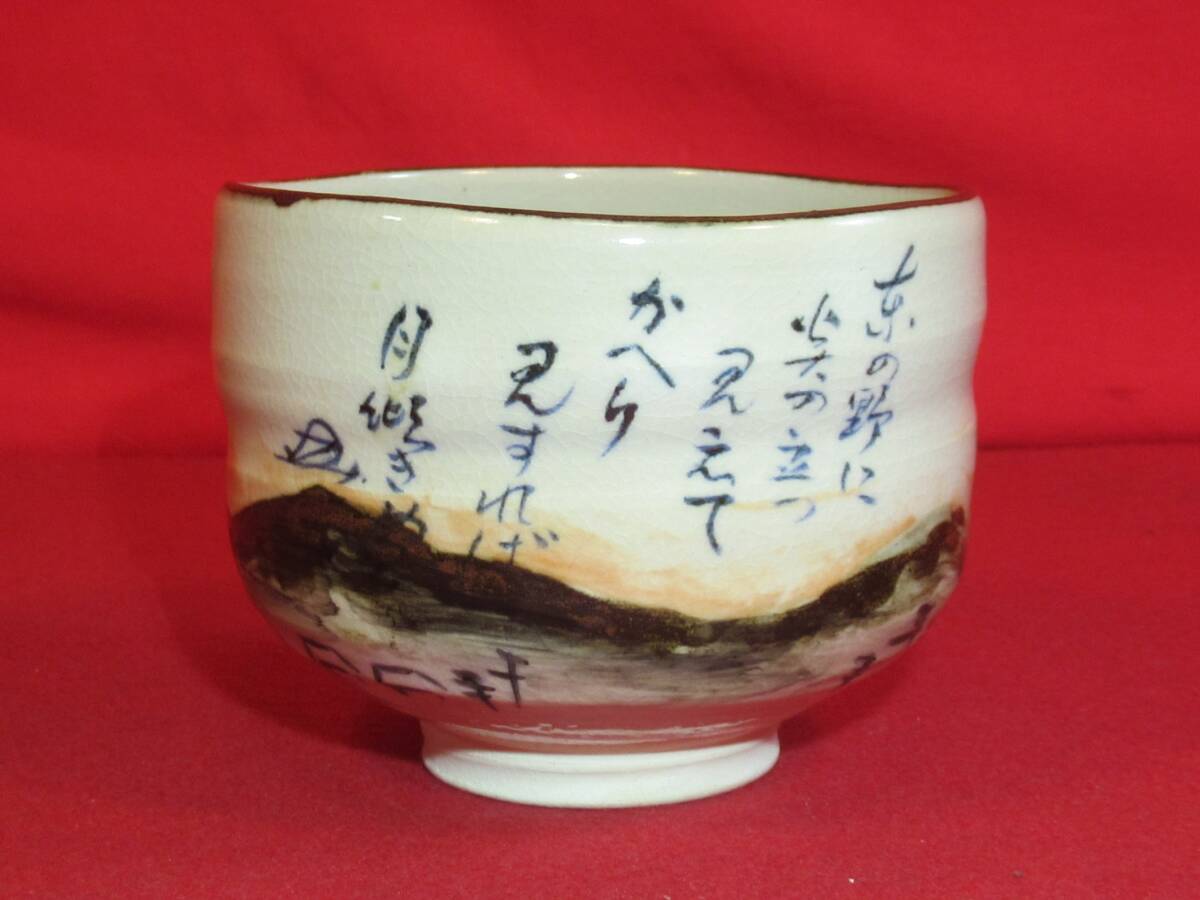 東の野に
炎の立つ
見えて
かへり
見すれば
月傾きぬ